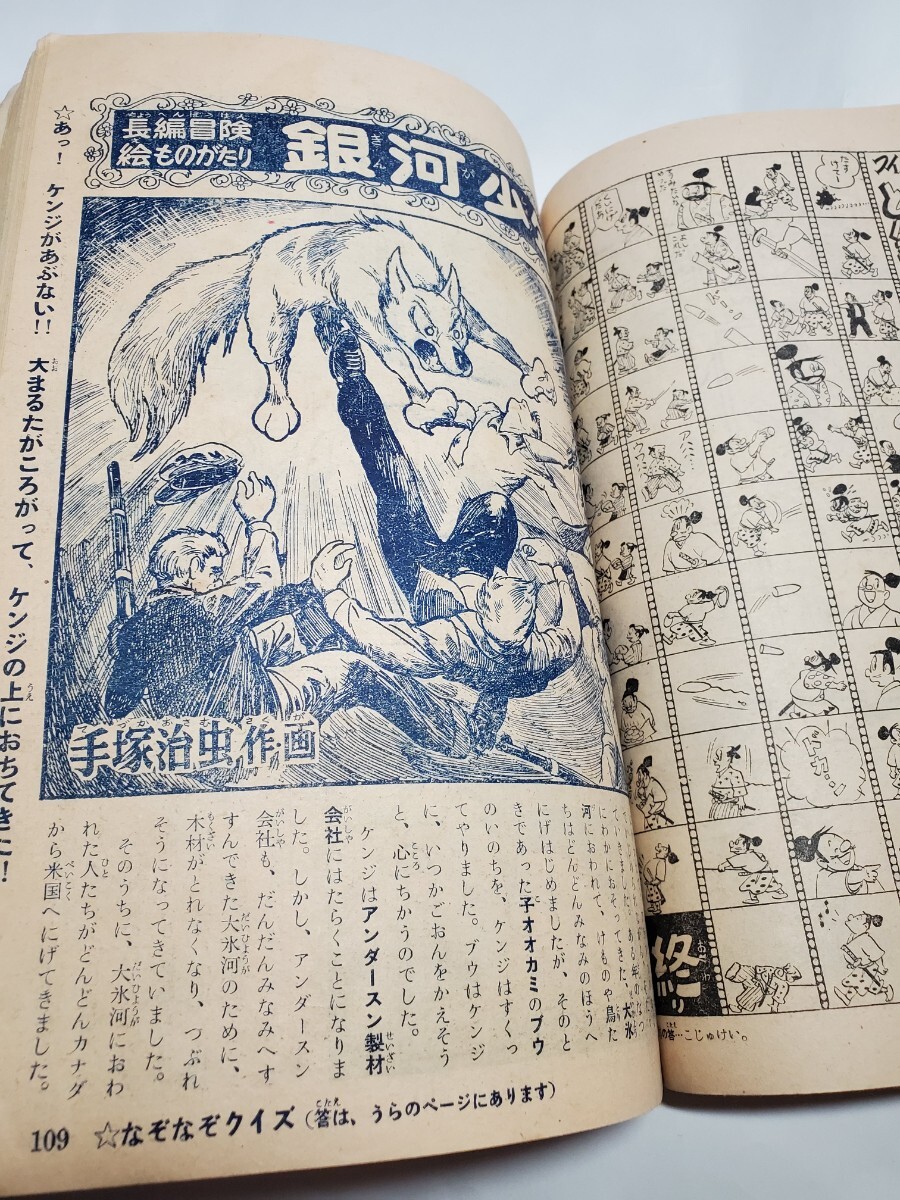 長編冒険
絵ものがたり
銀河少
☆あっ! ケンジがあぶない!! 大まるたがころがって、ケンジの上におちてきた!
手塚治虫作画
にわかにおそってきた、大氷
河におわれて、けものや鳥た
ちはどんどんみなみのほうへ
にげはじめましたが、そのと
きであった子オオカミのブウ
のいのちを、ケンジはすくっ
てやりました。ブウはケンジ
に、いつかごおんをかえそう
と、心にちかうのでした。
ケンジはアンダースン製材
会社にはたらくことになりま
した。しかし、アンダースン
会社も、だんだんみなみへす
すんできた大氷河のために、
木材がとれなくなり、つぶれ
そうになってきていました。
そのうちに、大氷河におわ
れた人たちがどんどんカナダ
から米国へにげてきました。
109
☆なぞなぞクイズ(答は、うらのページにあります)
たすけて〜
ドカン
終り
の答…こじゅけい。